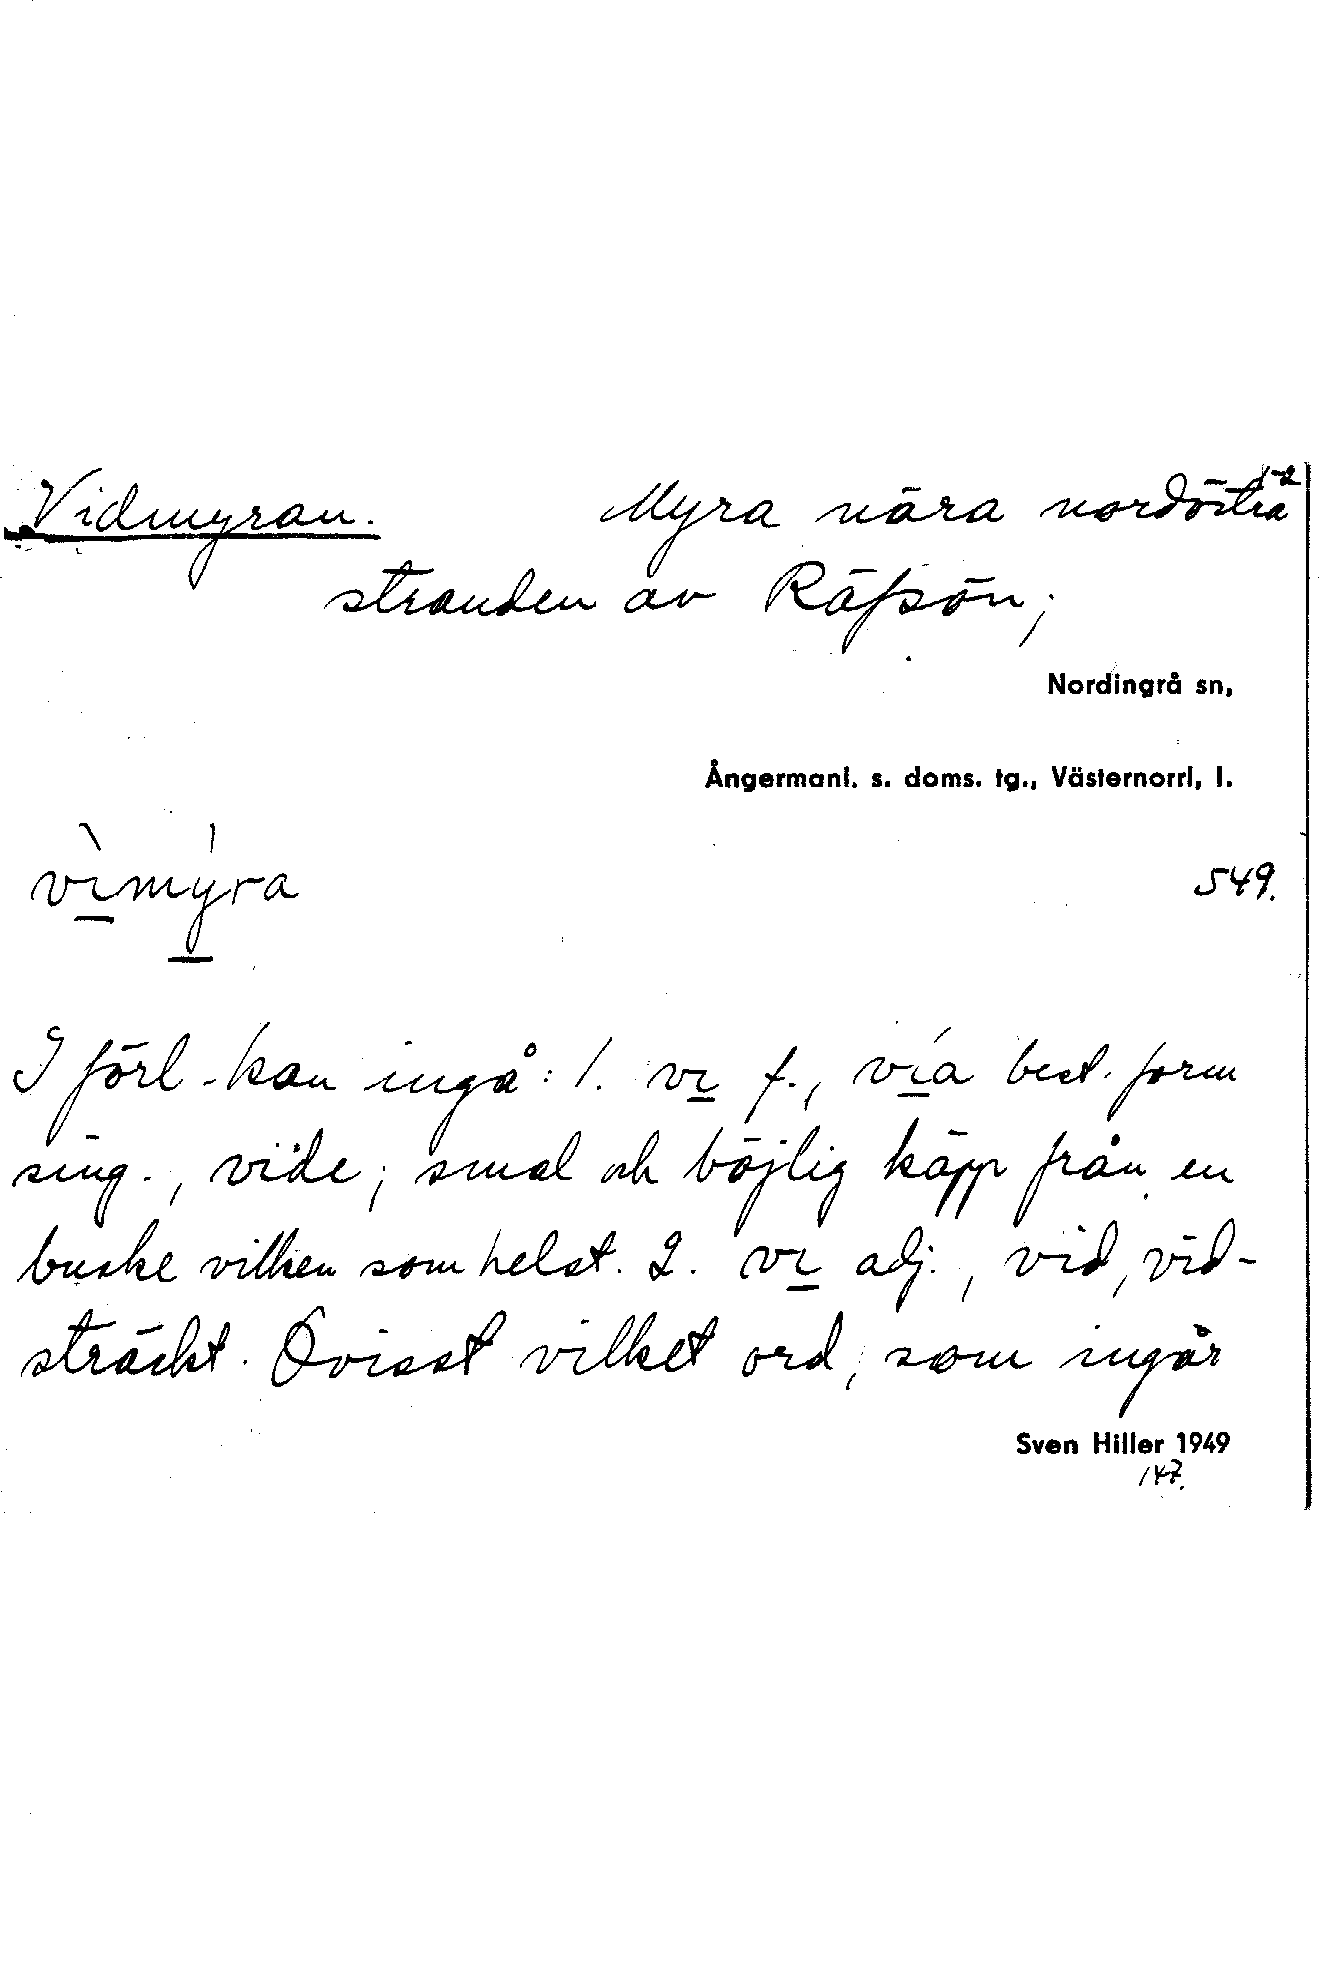 1-2
Vidmyran. Myra nära nordöstra
stranden av Räfsön;
Nordingrå sn,
Ångermanl. s. doms. tg., Västernorrl, l.
vìmýra
549.
I förl. kan ingå: 1. vi f., vía best. form
sing., vide; smal och böjlig käpp från en
buske vilken som helst. 2. vi adj., vid, vid-
sträckt. Ovisst vilket ord, som ingår
Sven Hiller 1949
147.